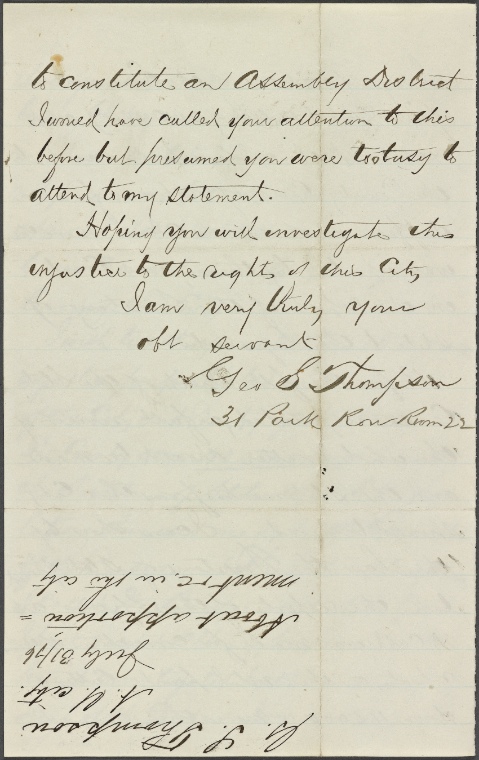 to constitute an Assembly District
I would have called your attention to this
before but presumed you were too busy to
attend to my statement.
Hoping you will investigate this
injustice to the rights of this City
I am very truly your
obt servant
Geo E Thompson
31 Park Row Room 22
G. E. Thompson
N. Y. city.
July 31/76
About apportion=
ment &c. in the city